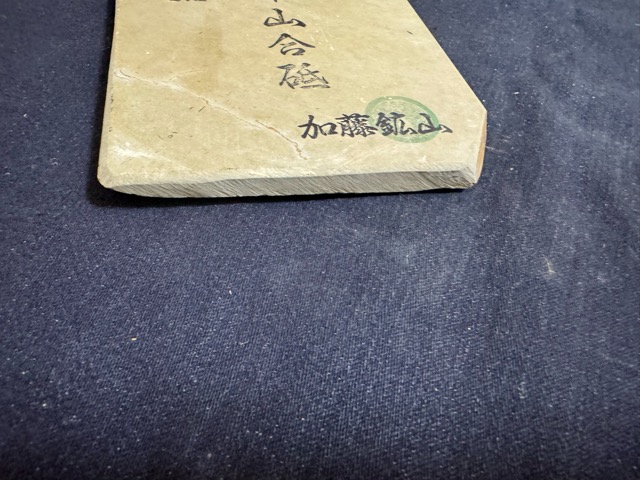 山合砥
加藤鉱山